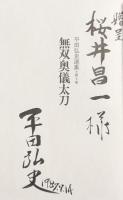 贈呈
桜井昌一様
平田弘史選集
無双奥儀太刀
平田弘史
1987.9.14